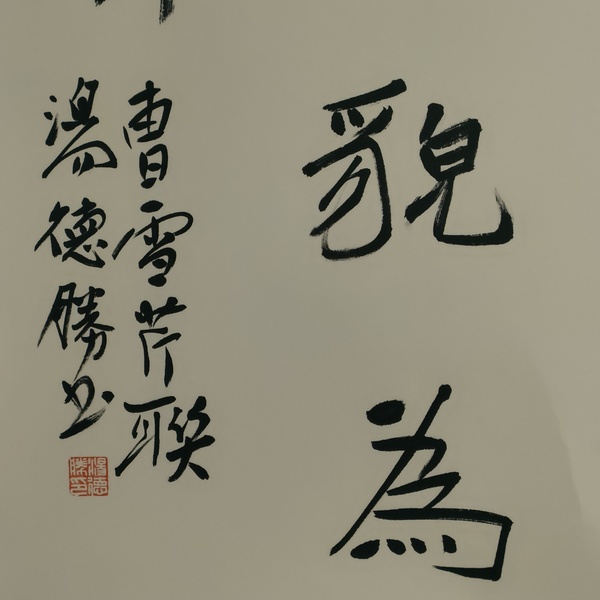 貌為
曹雪芹聯
湯德勝书
湯德勝印